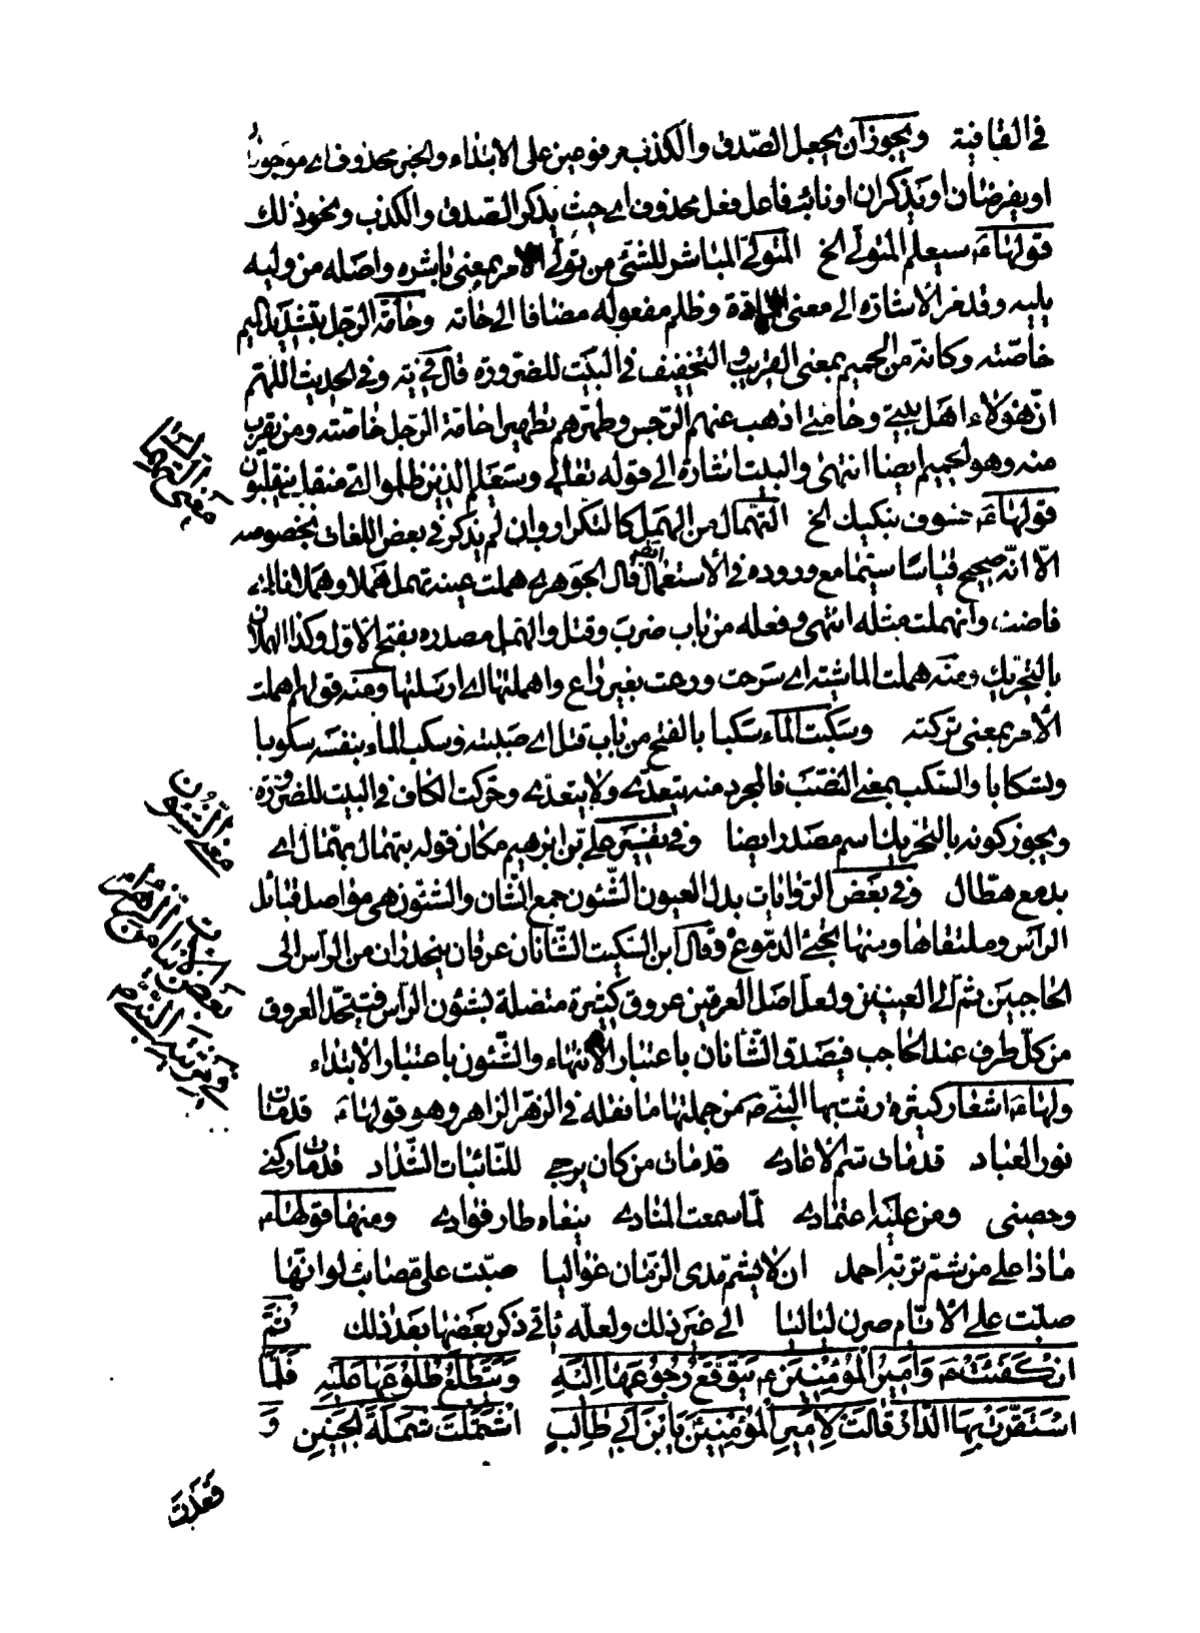 في القافية ويجوز ان يجعل الصّدق والكذب مرفوعين على الابتداء والخبر محذوف اى موجودان
او يفرضان او يذكران او نائب فاعل فعل محذوف اى حيث يذكر الصّدق والكذب ونحو ذلك
قولهاء سيعلم المتولّى الخ المتولّى المباشر للشئ من تولّى الامر بمعنى باشره واصله من وليه
يليه وقد مرّ الاشارة الى معنى المادّة وظلم مفعوله مضافا الى خاته وحامّة الرّجل بتشديد الميم
خاصّته وكانه من الحميم بمعنى القريب والتخفيف في البيت للضرورة قال في يه وفي الحديث اللهمّ
انّ هؤلاء اهل بيتى وحامّتى اذهب عنهم الرّجس وطهّرهم تطهيرا حامّة الرّجل خاصّته ومن يقرب
منه وهو الحميم ايضا انتهى والبيت اشارة الى قوله تعالى وسيعلم الذين ظلموا اى منقلب ينقلبون
قولهاء فسوف نبكيك الخ التهمال من الهمل كالتكرار وان لم يذكر في بعض اللغات بخصوصه
الّا انّه صحيح قياسا سيّما مع وروده في الاستعمال قال الجوهرى هملت عينه تهمل هملا وهملانا اى
فاضت وانهملت مثله انتهى وفعله من باب ضرب وقتل والهمل مصدره بفتح الاوّل وكذا الهملان
بالتحريك ومنه هملت الماشية اى سرحت ورعت بغير راع واهملتها اى ارسلتها ومنه قولهم اهملت
الأمر بمعنى تركته وسكبت الماء سكبا بالفتح من باب قتل اى صببته وسكب الماء بنفسه سكوبا
وتسكابا والسّكب بمعنى الصّبّ فالمجرد منه يتعدّى ولا يتعدّى وحرّكت الكاف في البيت للضرورة
ويجوز كونه بالتحريك اسم مصدر ايضا وفي تفسير على بن ابرهيم مكان قوله بتهمال بهمّال اى
بدمع هطّال وفي بعض الرّوايات بدل العيون الشّئون جمع الشّان والشّئون هى مواصل قبائل
الرأس وملتقاها ومنها يجئ الدّموع وقال ابن السّكيت الشّانان عرقان ينحدران من الرّأس الى
الحاجبين ثم الى العينين ولعلّ اصل العرقين عروق كثيرة متصلة بشئون الرّأس فيتّحد العروق
من كلّ طرف عند الحاجب فيصدق الشّانان باعتبار الانتهاء والشّئون باعتبار الابتداء
ولهاء اشعار كثيرة رثت بها النبىّ ص من جملتها ما نقله في الزّهر الزّاهر وهو قولهاء قد مات
نور العباد قد مات سمّ الاعادى قد مات من كان يرجى للنّائبات الشّداد قد مات ركنى
وحصنى ومن عليه اعتمادى لمّا سمعت المنادى ينعاه طار فؤادى ومنها قولهاء
ماذا على من شمّ تربة احمد ان لا يشمّ مدى الزّمان غواليا صبّت علىّ مصائب لو انّها
صبّت على الايّام صرن لياليا الى غير ذلك ولعلّه يأتى ذكر بعضها بعد ذلك ثُمَّ
انْكَفَئَتْ ء وَاَمِيرُ الْمُؤْمِنِينَ ء يَتَوَقَّعُ رُجُوعَهَا اِلَيْهِ وَيَتَطَلَّعُ طُلُوعَهَا عَلَيْهِ فَلَمَّا
اسْتَقَرَّتْ بِهَا الدّارُ قَالَتْ لِاَمِيرِ الْمُؤْمِنِينَ يَا بْنَ اَبِى طَالِبٍ اشْتَمَلْتَ شَمْلَةَ الْجَنِينِ وَ
قَعَدْتَ
معنى التهمال
معنى الشئون